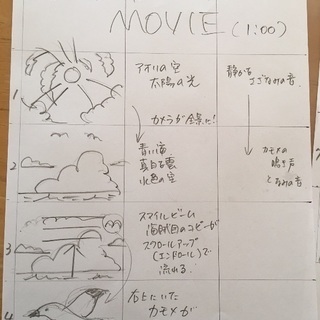 MOVIE (1:00)
1
アオリの空
太陽の光
カメラが全景に!
静かな
さざなみの音
2
青い海
真白な雲
水色の空
カモメの
鳴き声
となみの音
3
スマイルビーム
海賊団のコピーが
スクロールアップ
(エンドロール)で
流れる。
4
右上にいた
カモメが